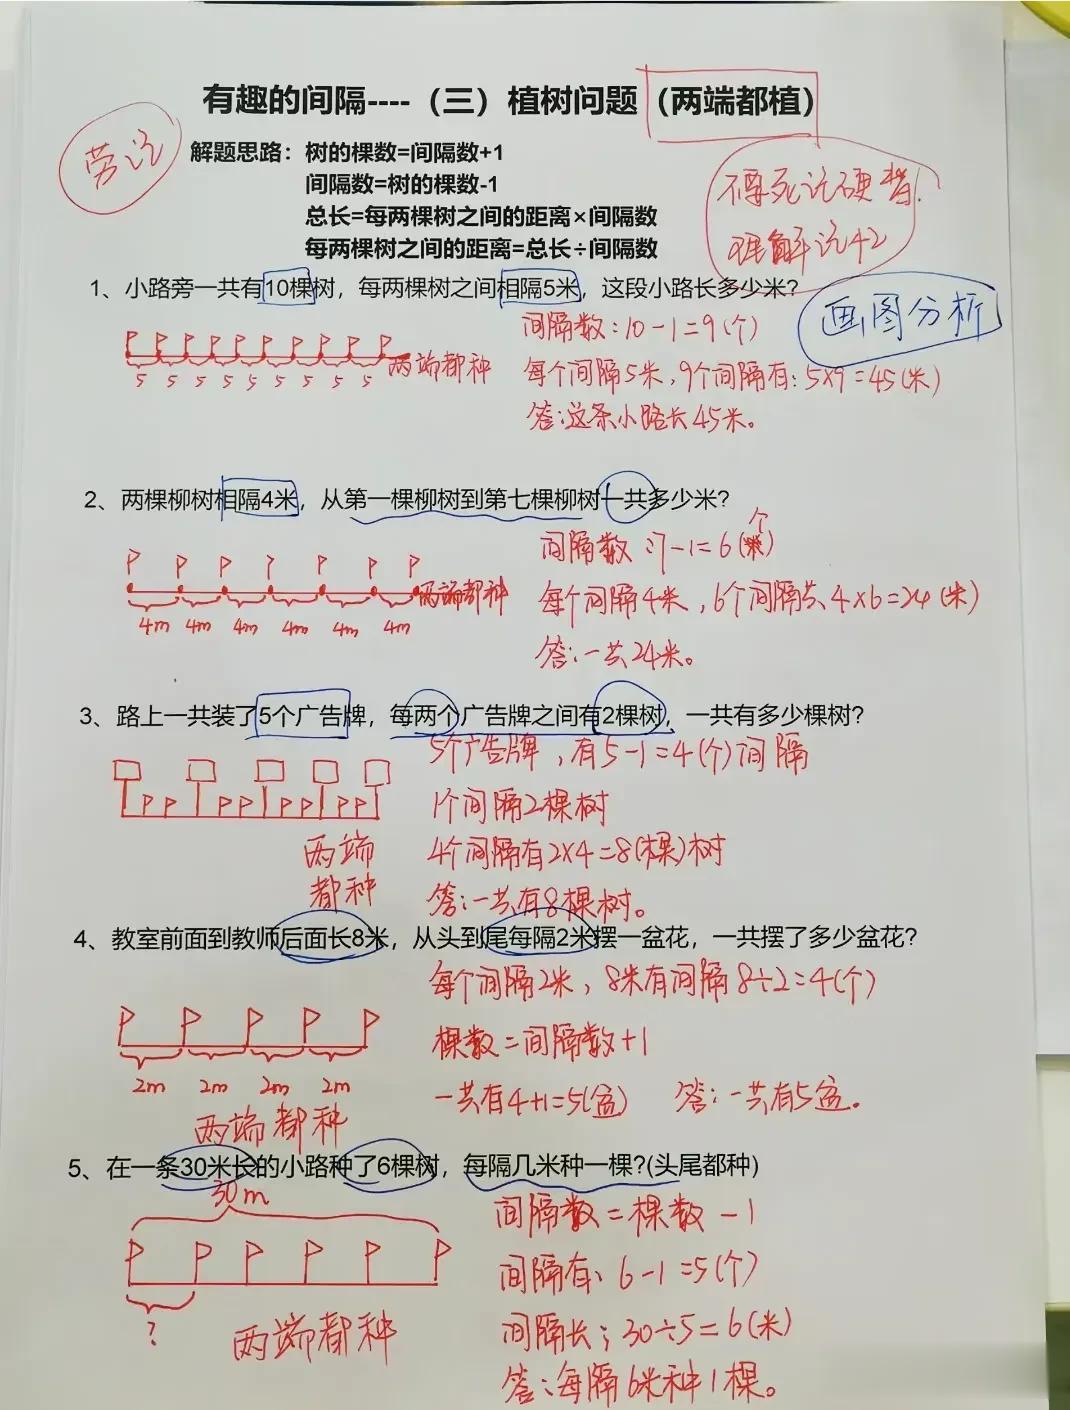 有趣的间隔----（三）植树问题（两端都植）
解题思路：树的棵数=间隔数+1
间隔数=树的棵数-1
总长=每两棵树之间的距离×间隔数
每两棵树之间的距离=总长÷间隔数
不要死记硬背！
理解记忆
画图分析
1、小路旁一共有10棵树，每两棵树之间相隔5米，这段小路长多少米？
间隔数：10-1=9（个）
5 5 5 5 5 5 5 5 5
两端都种
每个间隔5米，9个间隔有：5×9=45（米）
答：这条小路长45米。
2、两棵柳树相隔4米，从第一棵柳树到第七棵柳树一共多少米？
间隔数：7-1=6（个）
两端都种
4m 4m 4m 4m 4m 4m
每个间隔4米，6个间隔共4×6=24（米）
答：一共24米。
3、路上一共装了5个广告牌，每两个广告牌之间有2棵树，一共有多少棵树？
5个广告牌，有5-1=4（个）间隔
1个间隔2棵树
两端
都种
4个间隔有2×4=8（棵）树
答：一共有8棵树。
4、教室前面到教师后面长8米，从头到尾每隔2米摆一盆花，一共摆了多少盆花？
每个间隔2米，8米有间隔8÷2=4（个）
棵数=间隔数+1
2m 2m 2m 2m
两端都种
一共有4+1=5（盆） 答：一共有5盆。
5、在一条30米长的小路种了6棵树，每隔几米种一棵？(头尾都种)
30m
?
两端都种
间隔数=棵数-1
间隔有：6-1=5（个）
间隔长：30÷5=6（米）
答：每隔6米种1棵。